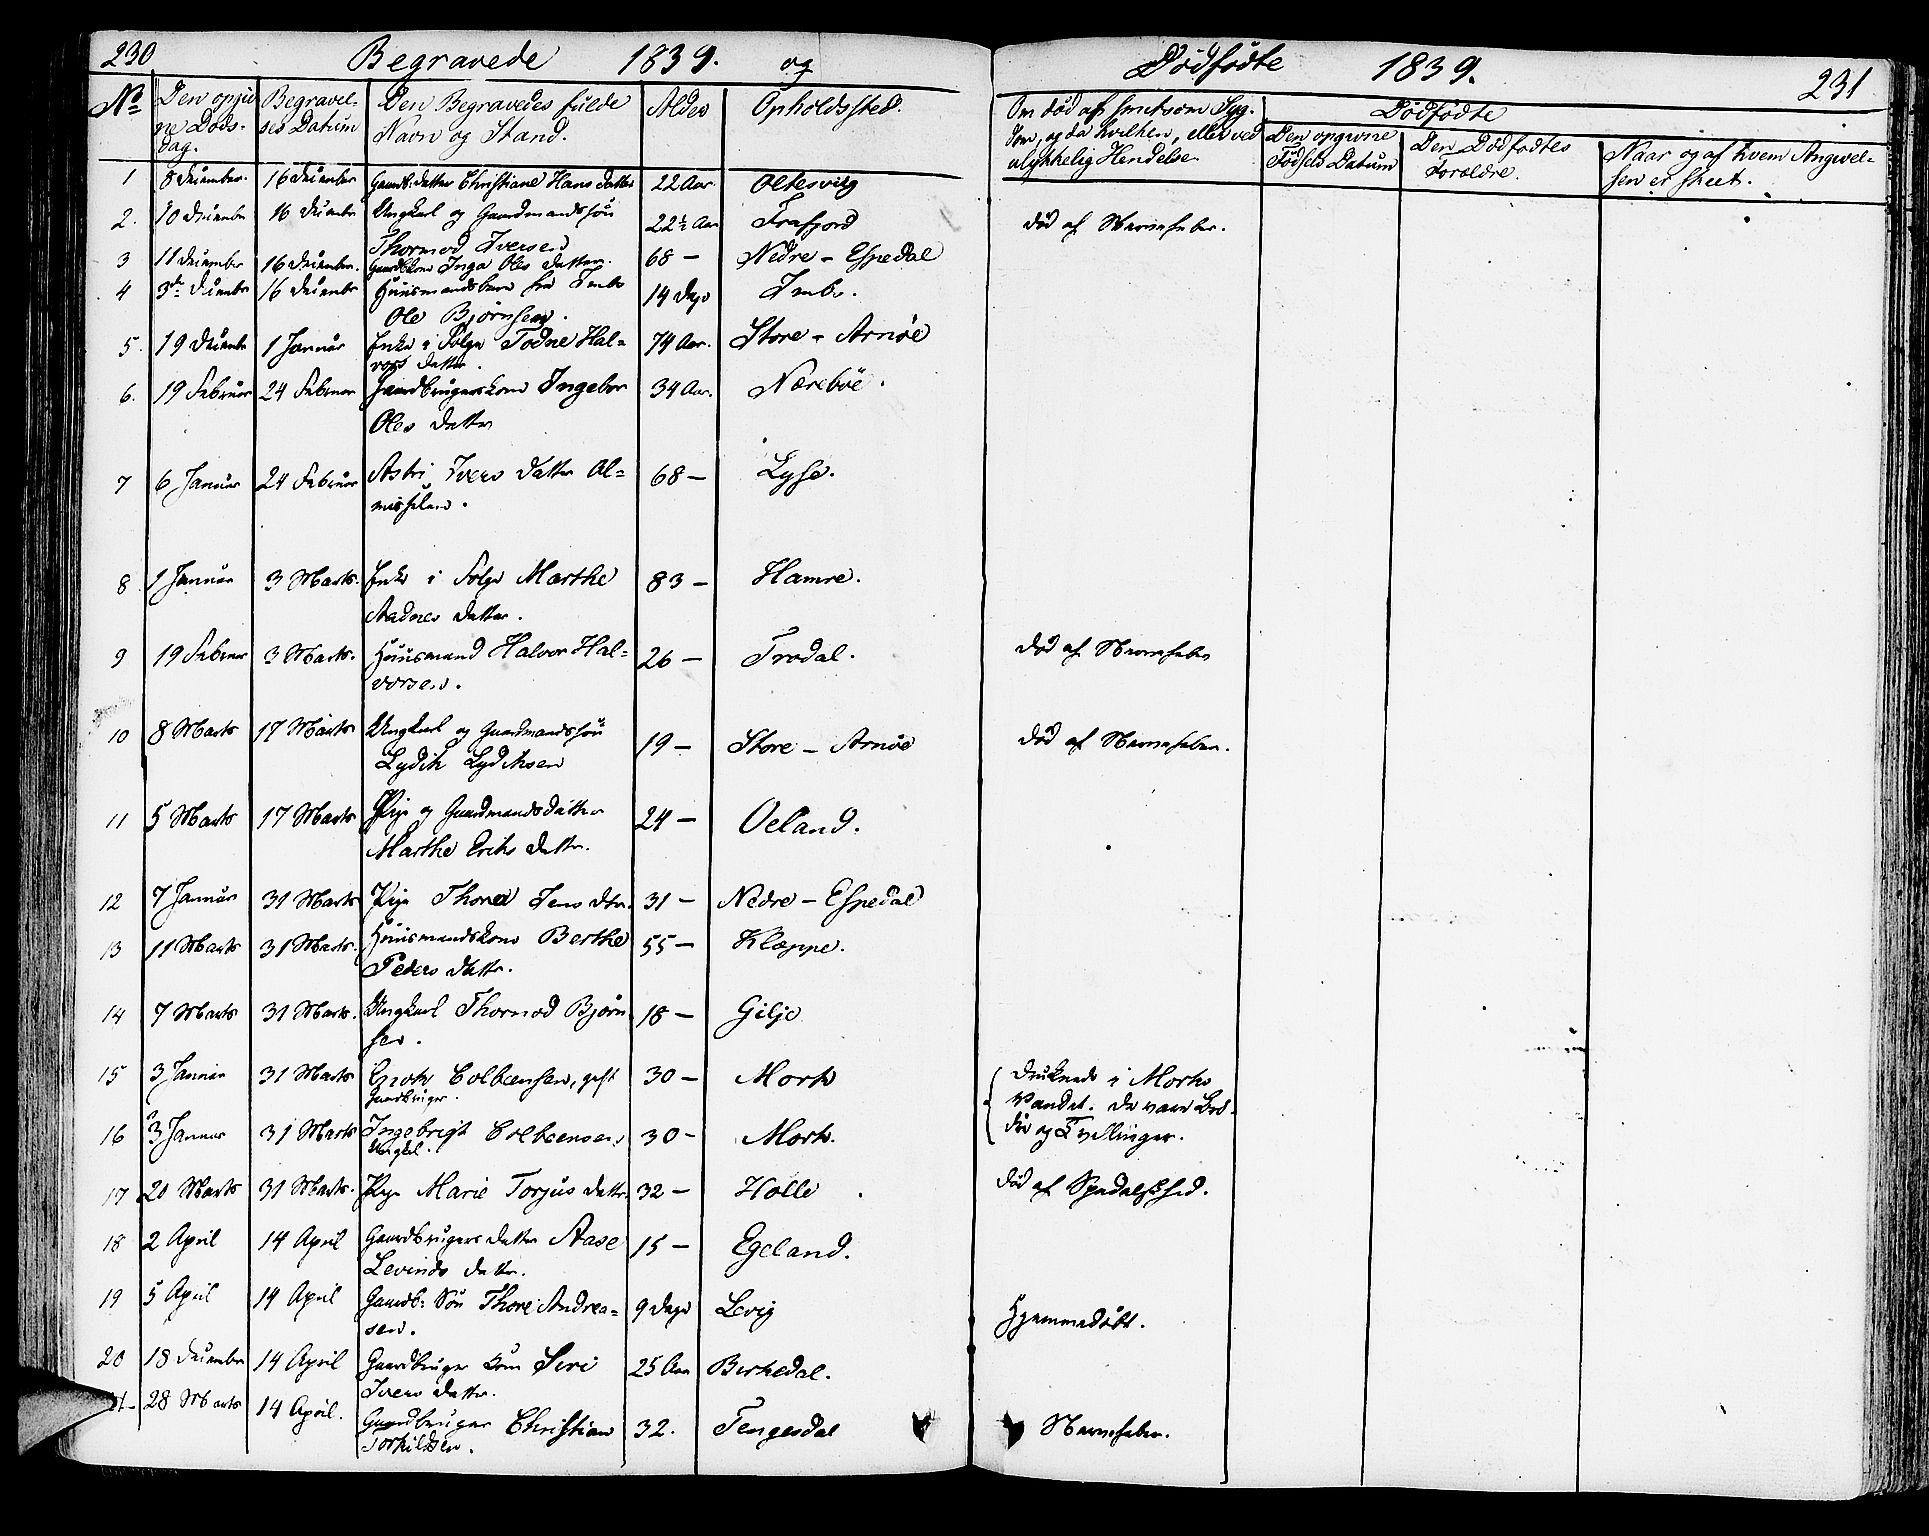 230 Begravede 1839. og
Dödfödte 1839. 231
No Den opgivne Döds-dag. Begravel-ses Datum Den Begravedes fulde Navn og Stand. Alder Opholdssted. Om död af smitsom Syg-dom, og da hvilken, eller ved ulykkelig Hendelse Dödfödte
Den opgivne Födsels Datum Den Dödfödtes Forældre. Naar og af hvem Angivel-sen er skeet.
1 8 December. 16 December Gaardb. datter Christiane Hans datter 22 Aar. Oltesvig
2. 10 December 16 December Ungkarl og Gaardmandssön 22½ Aar Frafjord död af Nervefeber.
Thormod Iversen
3 11 December 16 December. Gaardbkone Inga Oles datter. 68 — Nedre - Espedal
4 3de December 16 December Huusmandsbarn fra Imbs 14 Dage Imbs.
Ole Björnsen.
5. 19 December 1 Januar Enke i Folge Todne Hal= 74 Aar. Store - Arnöe
vors datter.
6. 19 Februar 24 Februar Gaardbrugerkone Ingebor 34 Aar. Næreböe.
Oles datter
7 6 Januar 24 Februar Astri Ivers datter Al= 68 — Lyse.
misselem.
8 1 Januar 3 Marts. Enke i Folge Marthe 83 — Hamre.
Aadnes datter.
9 19 Februar 3 Marts. Huusmand Halvor Hal= 26 — Frodal. död af Nervefeber
vorsen.
10 8 Marts 17 Marts Ungkarl og Gaardmandssön 19 — Store - Arnöe död af Nervefeber.
Lydik Lydiksen
11 5 Marts 17 Marts Pige og Gaardmandsdatter 24 — Oeland.
Marthe Eriks datter.
12 7 Januar 31 Marts Pige Thorea Jens dtr. 31 — Nedre - Espedal
13 11 Marts 31 Marts. Huusmandskone Berthe 55 — Klæppe.
Peders datter.
14 7 Marts 31 Marts. Ungkarl Thormod Björn 18 — Gilje
sen.
15 3 Januar 31 Marts Enok Colbeensen, gift 30 — Mork Druknede i Morke
Gaardbruger. Vandet. De vare Brö-
16 3 Januar 31 Marts Ingebrigt Colbeensen 30 — Mork. dre og Tvillinger.
Ungkl.
17 20 Marts 31 Marts. Pige Marie Torjus datter. 32 — Holle död af Spedalskhed.
18 2 April 14 April Gaardbrugers datter Aase 15 — Egeland.
Levinds datter.
19 5 April 14 April Gaardb: Sön Thore Andrea= 9 Dage Levig Hjemmedöbt.
sen.
20 18 December 14 April Gaardbruger kone Siri 25 Aar Birkedal.
Ivers datter.
21 28 Marts 14 April. Gaardbruger Christian 32. Tengesdal Nervefeber.
Torkildsen.